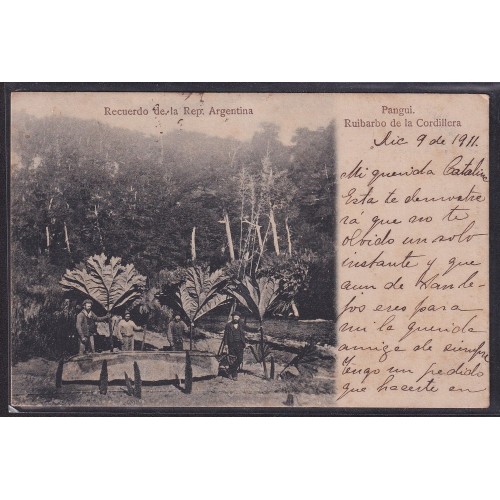 Recuerdo de la Rep. Argentina
Pangui.
Ruibarbo de la Cordillera
Dic 9 de 1911.
Mi querida Catalina
Esta te demostre
rá que no te
olvido un solo
instante y que
aun de tan le-
jos eres para
mi la querida
amiga de siempre
Tengo un pedido
que hacerte en